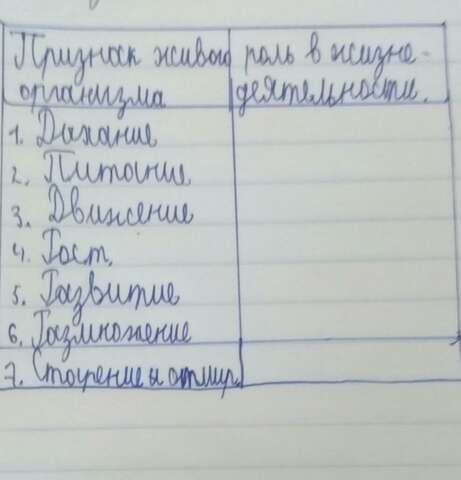 Признак живого роль в жизне-
организма деятельности.
1. Дыхание
2. Питание
3. Движение
4. Рост.
5. Развитие
6. Размножение
7. Старение и отмир.